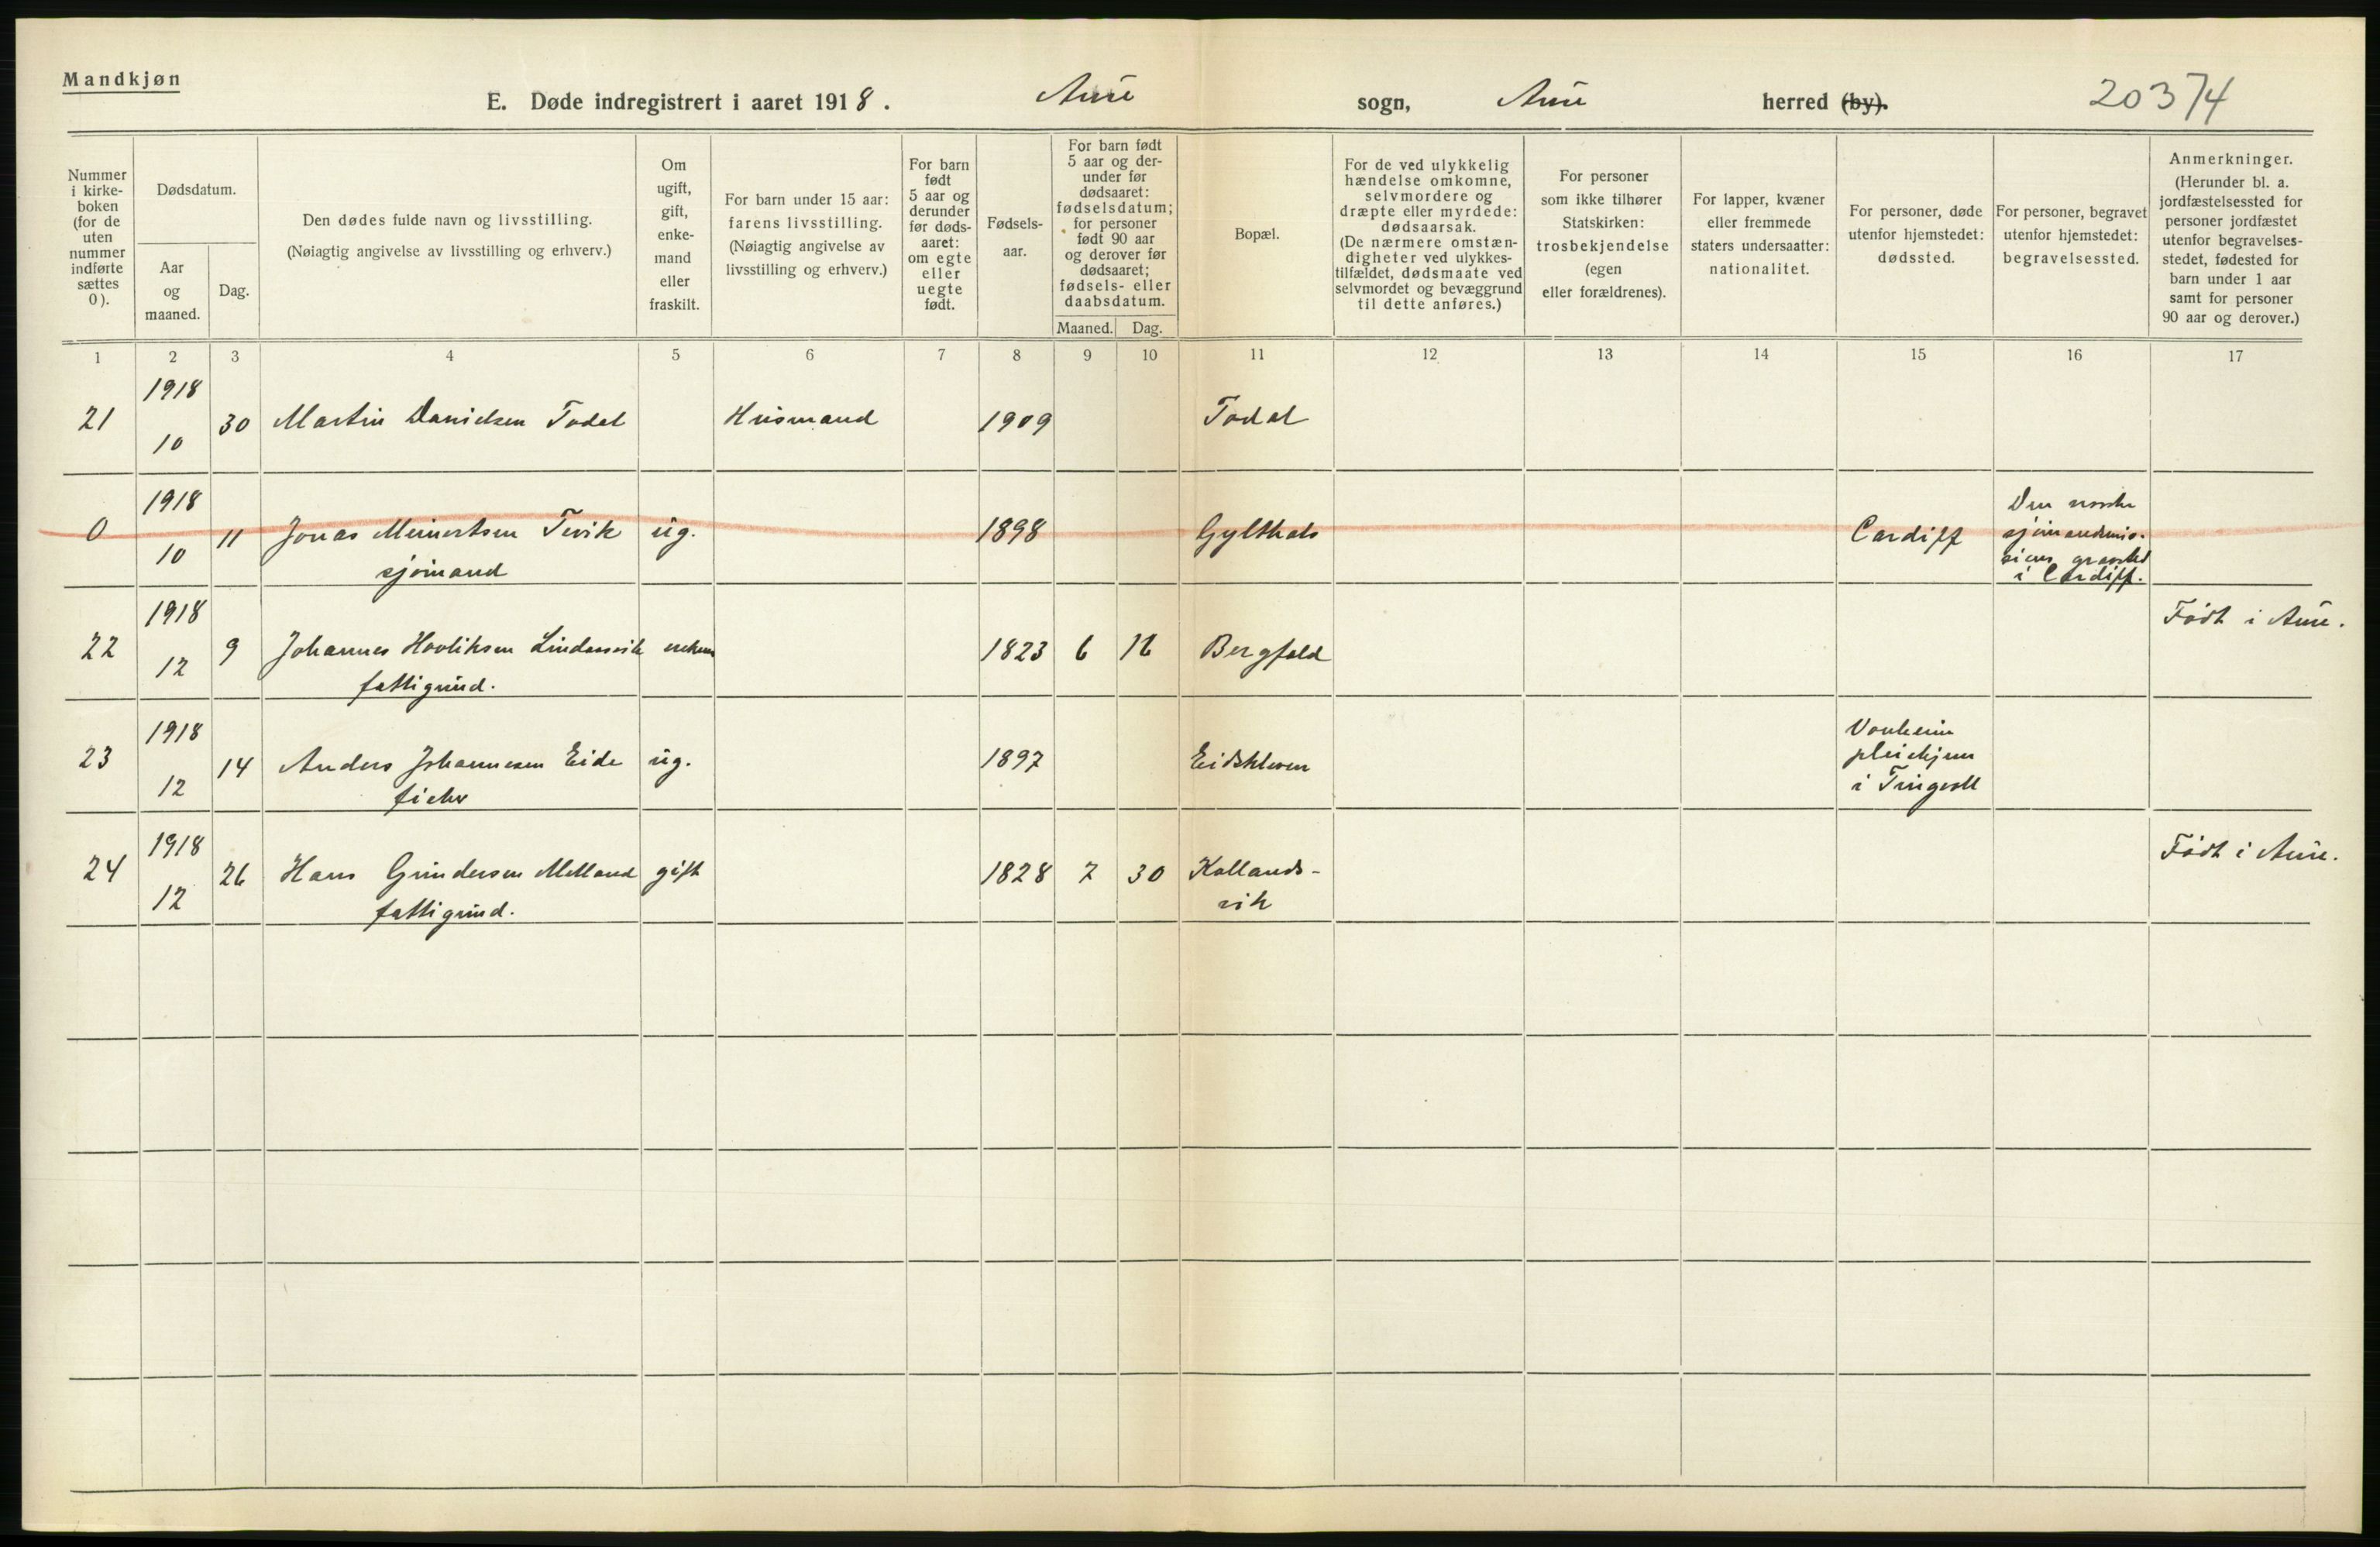 Mandkjøn
E. Døde indregistrert i aaret 1918. Aure sogn, Aure herred (by). 20374
Nummer i kirke- boken (for de uten nummer indførte sættes 0).
Dødsdatum.
Aar og maaned.
Dag.
Den dødes fulde navn og livsstilling.
(Nøiagtig angivelse av livsstilling og erhverv.)
Om ugift, gift, enke- mand eller fraskilt.
For barn under 15 aar: farens livsstilling.
(Nøiagtig angivelse av livsstilling og erhverv.)
For barn født 5 aar og derunder før døds- aaret: om egte eller uegte født.
Fødsels- aar.
For barn født 5 aar og der- under før dødsaaret: fødselsdatum; for personer født 90 aar og derover før dødsaaret; fødsels- eller daabsdatum.
Maaned. Dag.
Bopæl.
For de ved ulykkelig hændelse omkomne, selvmordere og dræpte eller myrdede: dødsaarsak. (De nærmere omstæn- digheter ved ulykkes- tilfældet, dødsmaate ved selvmordet og bevæggrund til dette anføres.)
For personer som ikke tilhører Statskirken: trosbekjendelse (egen eller forældrenes).
For lapper, kvæner eller fremmede staters undersaatter: nationalitet.
For personer, døde utenfor hjemstedet: dødssted.
For personer, begravet utenfor hjemstedet: begravelsessted.
Anmerkninger. (Herunder bl. a. jordfæstelsessted for personer jordfæstet utenfor begravelses- stedet, fødested for barn under 1 aar samt for personer 90 aar og derover.)
1 2 3 4 5 6 7 8 9 10 11 12 13 14 15 16 17
21 1918 10 30 Martin Danielsen Todal Husmand 1909 Todal
0 1918 10 11 Jonas Meinertsen Tevik ug. 1898 Gylthals Cardiff Den norske
sjømandsmis-
sjømand
sions gravsted
i Cardiff.
22 1918 12 9 Johannes Hovliksen Lindaasvik enkem 1823 6 16 Bergfald Født i Aure.
fattigund.
23 1918 12 14 Anders Johannesen Eide ug. 1897 Eidskleven Vonheim
pleiehjem
i Tingvoll
fisker
24 1918 12 26 Hans Gundersen Melland gift 1828 7 30 Kallands-
vik
Født i Aure.
fattigund.